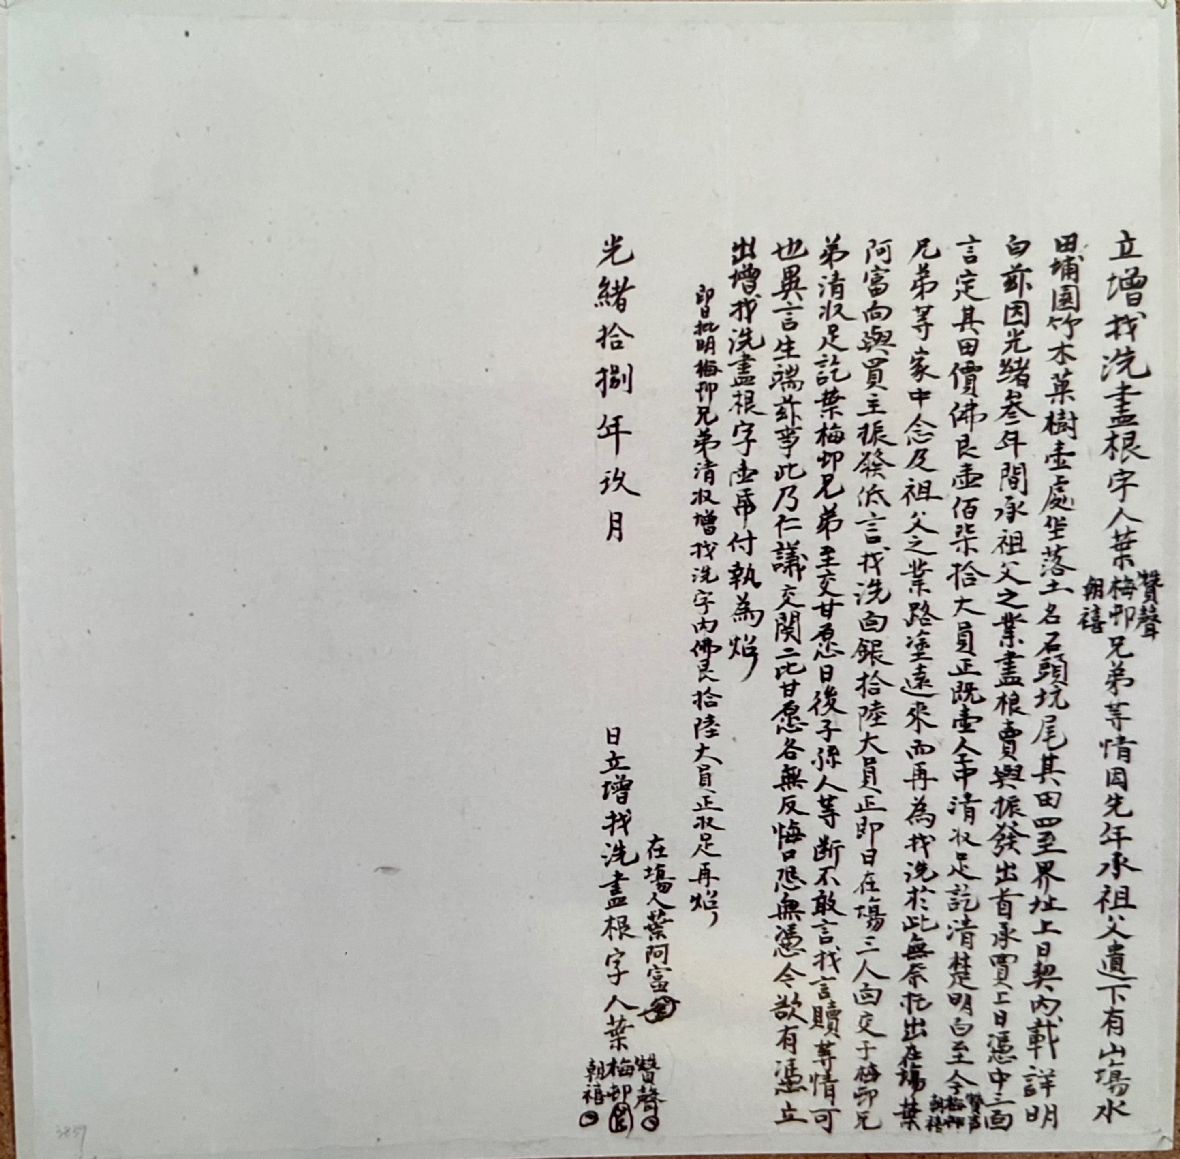 立增找洗盡根字人葉賛聲梅邨朝禧兄弟等情因先年承祖父遺下有山塲水
田埔園竹木菓樹壹處坐落土名石頭坑尾其田四至界址上日契內載詳明
白茲因光緒叁年間承祖父之業盡根賣與振發出首承買上日憑中三面
言定其田價佛艮壹佰柒拾大員正既壹仝中清收足訖清楚明白至今賛声梅邨朝禧
兄弟等家中念及祖父之業路塗遠來而再為找洗於此無奈托出在塲葉
阿富向與買主振發低言找洗面銀拾陸大員正即日在塲三人面交于梅邨兄
弟清收足訖葉梅邨兄弟至交甘愿日後子孫人等断不敢言找言贖等情可
也異言生端茲事此乃仁議交関二比甘愿各無反悔口恐無憑今欲有憑立
出增找洗盡根字壹帋付執為炤
即日批明梅邨兄弟清收增找洗字內佛艮拾陸大員正收足再炤
在塲人葉阿富
光緒拾捌年玖月 日立增找洗盡根字人葉賛聲梅邨朝禧
3857